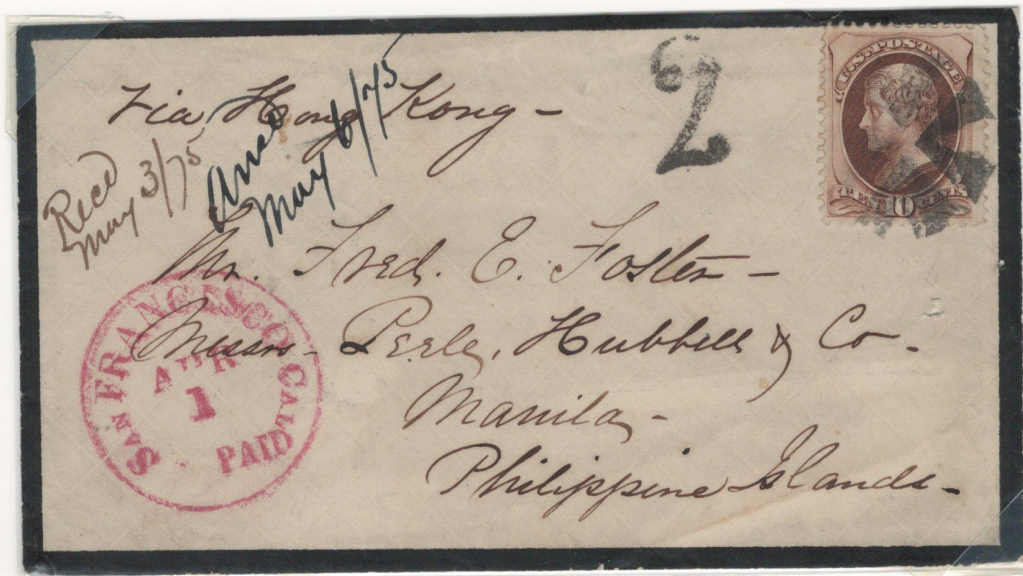 U.S. POSTAGE
TEN 10 CENTS
2
Via Hong Kong -
Recd
May 3/75
Ansd
May 6/75
Mr. Fred. E. Foster -
Messrs. Peele, Hubbell & Co.
Manila -
Philippine Islands -
SAN FRANCISCO CAL.
APR
1
PAID